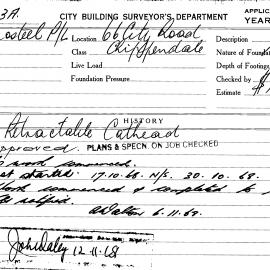 3A. CITY BUILDING SURVEYOR'S DEPARTMENT APPLIC
YEAR
osteel P/L Location 66 City Road Description
Class Chippendale Nature of Found
Live Load Depth of Footings
Foundation Pressure Checked by
Estimate
HISTORY
Retractable Cathead
approved. PLANS & SPECN. ON JOB CHECKED
work commenced.
not started. 17.10.68. N/S. 30.10.68.
Work commenced & completed to
6.11.68.
John Daley 12-11-68